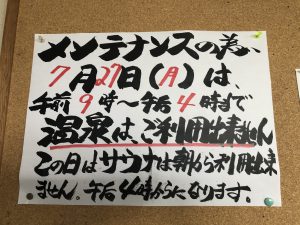 メンテナンスの為、
7月27日(月)は、
午前9時〜午后4時まで
温泉は、ご利用出来ません
この日はサウナは朝から利用出来
ません。午后4時からになります。